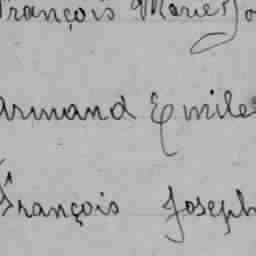 François Marie Jo
Armand Emile
François Joseph